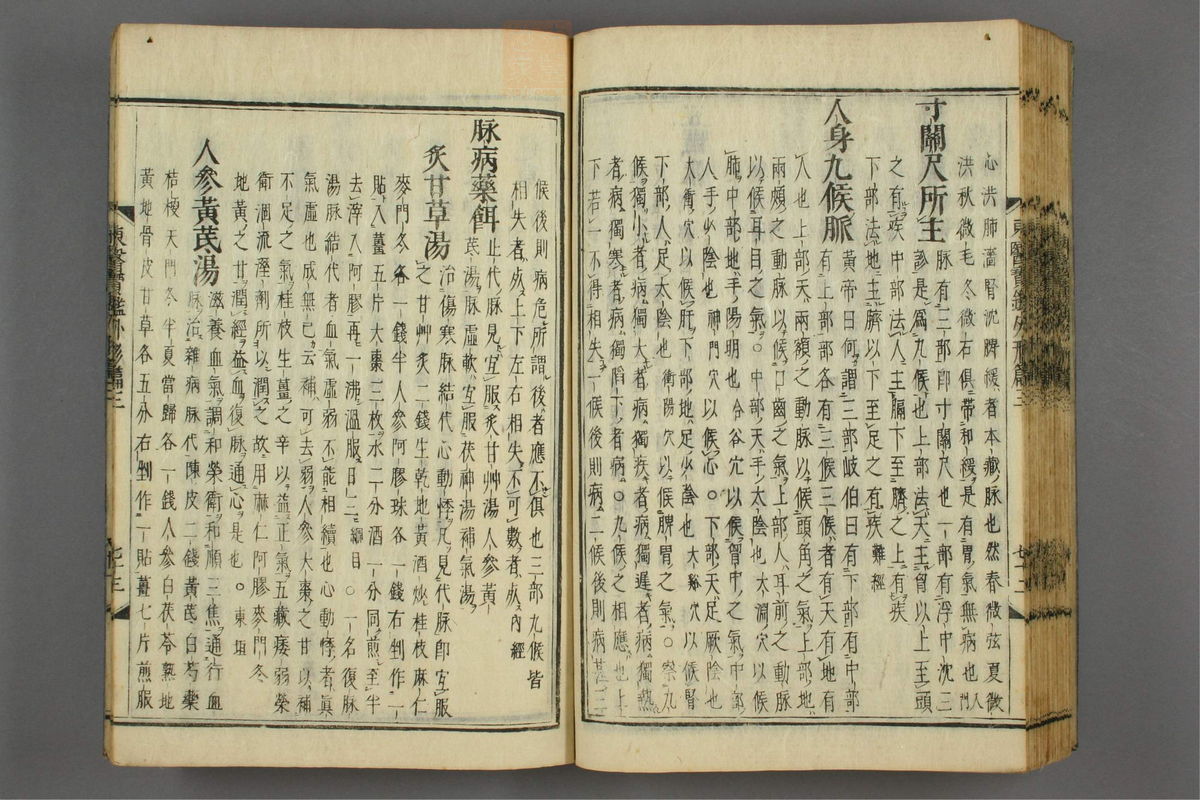 心洪肺濇腎沈脾緩者本藏脉也然春微弦夏微
洪秋微毛冬微石俱帶和緩是有胃氣無病也入門
寸關尺所主
脉有三部卽寸關尺也一部有浮中沈三
診是爲九候也上部法天主胷以上至頭
之有疾中部法人主膈下至臍之上有疾
下部法地主臍以下至足之有疾難經
人身九候脈
黃帝曰何謂三部岐伯曰有下部有中部
有上部部各有三候三候者有天有地有
人也上部天兩額之動脉以候頭角之氣上部地
兩頰之動脉以候口齒之氣上部人耳前之動脉
以候耳目之氣○中部天手太陰也太淵穴以候
肺中部地手陽明也合谷穴以候胷中之氣中部
人手少陰也神門穴以候心○下部天足厥陰也
太衝穴以候肝下部地足少陰也太谿穴以候腎
下部人足太陰也衝陽穴以候脾胃之氣○察九
候獨小者病獨大者病獨疾者病獨遲者病獨熱
者病獨寒者病獨陷下者病○九候之相應也上
下若一不得相失一候後則病二候後則病甚三
候後則病危所謂後者應不俱也三部九候皆
相失者死上下左右相失不可數者死內經
脉病藥餌
止代脉見宜服炙甘艸湯人參黃
芪湯脉虛軟宜服茯神湯補氣湯
炙甘草湯
治傷寒脉結代心動悸凡見代脉卽宜服
之甘艸炙二錢生乾地黃酒炒桂枝麻仁
麥門冬各一錢半人參阿膠珠各一錢右剉作一
貼入薑五片大棗三枚水二分酒一分同煎至半
去滓入阿膠再一沸溫服日三綱目○一名復脉
湯脉結代者血氣虛弱不能相續也心動悸者眞
氣虛也成無已云補可去弱人參大棗之甘以補
不足之氣桂枝生薑之辛以益正氣五藏痿弱榮
衛涸流溼劑所以潤之故用麻仁阿膠麥門冬
地黃之甘潤經益血復脉通心是也○東垣
人參黃芪湯
滋養血氣調和榮衛和順三焦通行血
脉治雜病脉代陳皮二錢黃芪白芍藥
桔梗天門冬半夏當歸各一錢人參白茯苓熟地
黃地骨皮甘草各五分右剉作一貼薑七片煎服